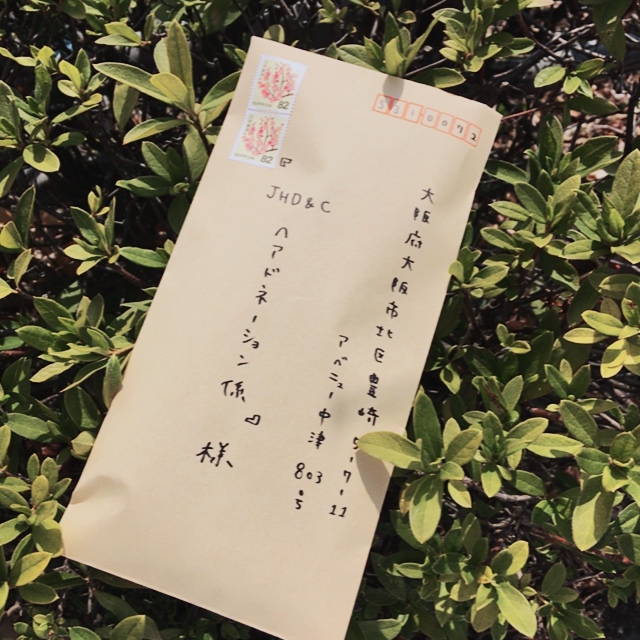 5310072
大阪府大阪市北区豊崎5-7-11
アベニュー中津803・5
「JHD&C
ヘアドネーション係」
様
82
82